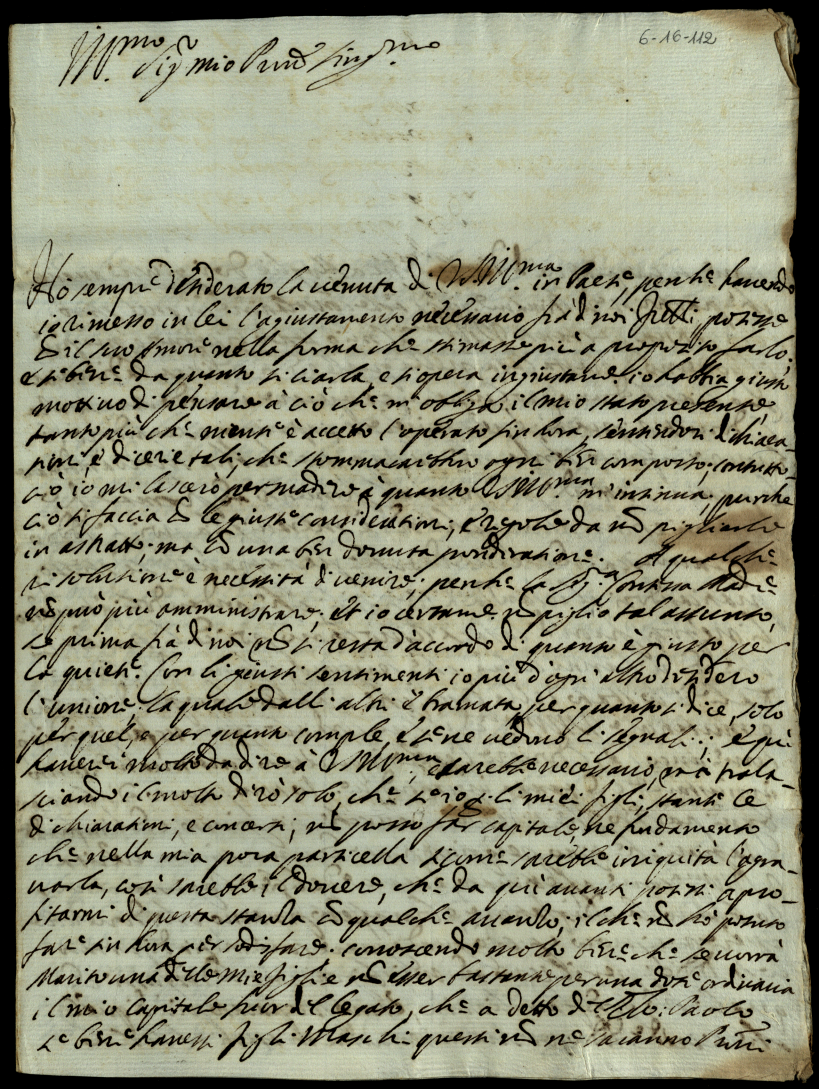 6-16-112
Ill.mo Sig.r mio Pron Sing.mo
Hò sempre desiderato la venuta di V.S.Ill.ma in Paese, perche havendo
io rimesso in lei l'agiustamento necessario frà di noi fretelli, potesse
il suo Amore nella forma che stimasse più a proposito farlo.
e se bene da quanto si ciarla, e si opera ingiustam.e io habbia giusto
mottivo di pensare à ciò che m'obliga il mio stato presente,
tanto più che niente è accetto l'operato sin hora, sentendosi dichiara-
tioni, e dicerie tali, che stommacarebbero ogni ben composto; contutto
ciò io mi lascerò persuadere à quanto V.S.Ill.ma m'insinua, purche
ciò si faccia con le giuste considerationi, e regole da non pigliarle
in astratto, ma con una ben dovuta ponderatione. A qualche
risolutione è necessità di venire, perche la Sig.a Contessa Madre
non può più amministrare, et io certam.e non piglio tal assunto,
se prima frà di noi non si resta d'accordo di quanto è giusto per
la quiete. Con li giusti sentimenti io più d'ogni altro desidero
l'unione, la quale dalli altri è bramata, per quanto si dice, solo
per quel, e per quanto comple, e se ne vedono li segnali; e quì
haverei molto da dire à V.S.Ill.ma, e sarebbe necessario, mà trala-
sciando il molto dirò solo, che se io, e li miei figli, stante le
dichiarationi, e concerti, non posso far capitale, ne fondamento
che nella mia pora particella, sicome sarebbe iniquità l'agra-
varla, così sarebbe il dovere, che da qui avanti potessi apro-
fitarmi di questa stanza con qualche avanzo, il che non hò potuto
fare sin hora per sodisfare, conoscendo molto bene che se vorrà
Marito una delle mie figlie non esser bastante per una dote ordinaria
il mio capitale fuor del legato, che a detto di Paolo
se bene havessi figli Maschi questi non ne saranno